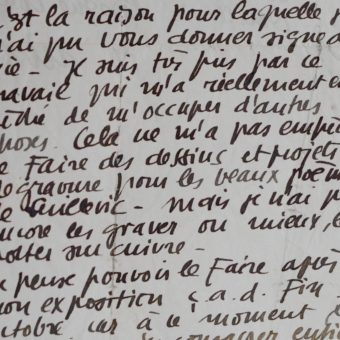 est la raison pour laquelle j
n'ai pu vous donner signe d
vie - Je suis très pris par ce
travail qui m'a réellement e
de m'occuper d'autres
choses. Cela ne m'a pas empê
de faire des dessins et projets
de gravure pour les beaux poèm
de Guillevic - mais je n'ai p
encore les graver ou mieux, le
sur cuivre -
pense pouvoir le faire après
mon exposition ç.a.d. Fin
octobre car à ce moment